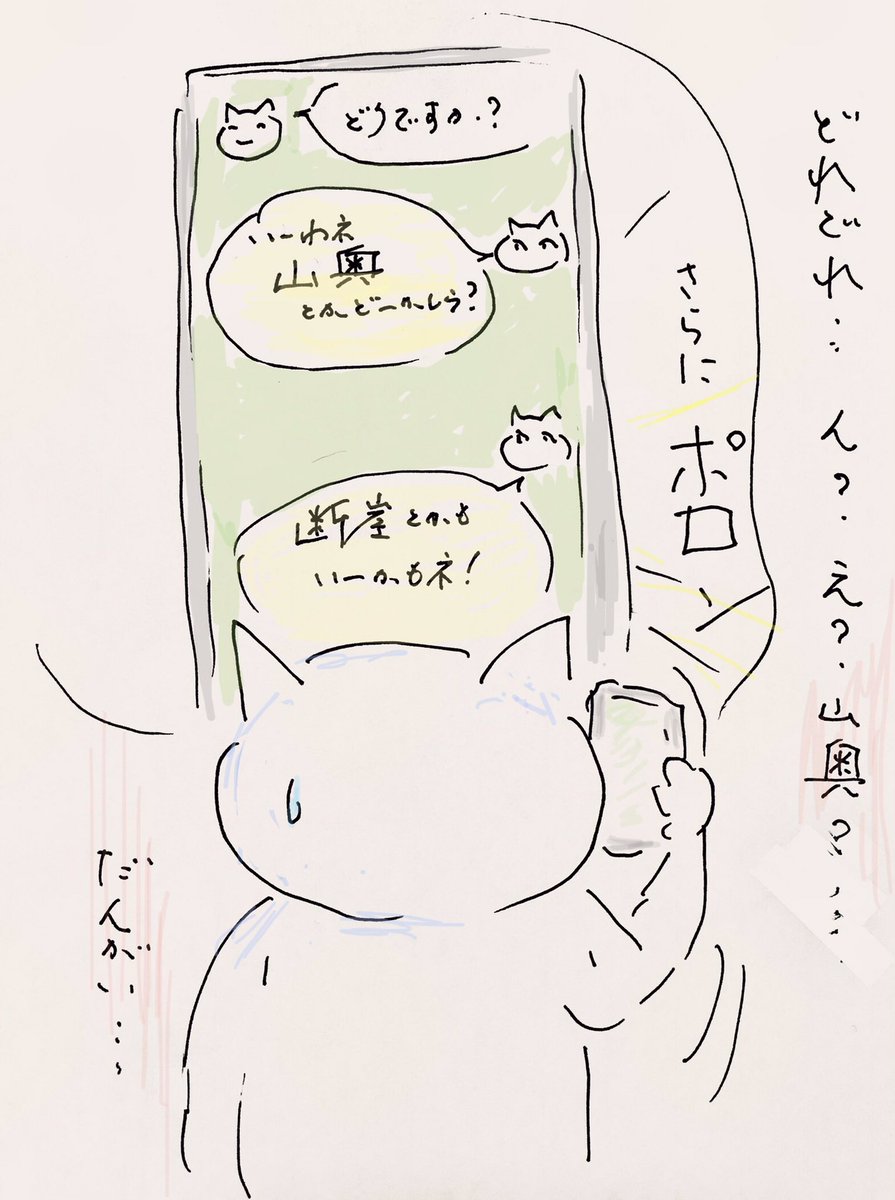 どれどれ… ん？え？山奥？……
さらに
ポロ
どうですか？
いーわネ
山奥
とかどーかしら？
断崖とかも
いーかもネ！
だんがい…